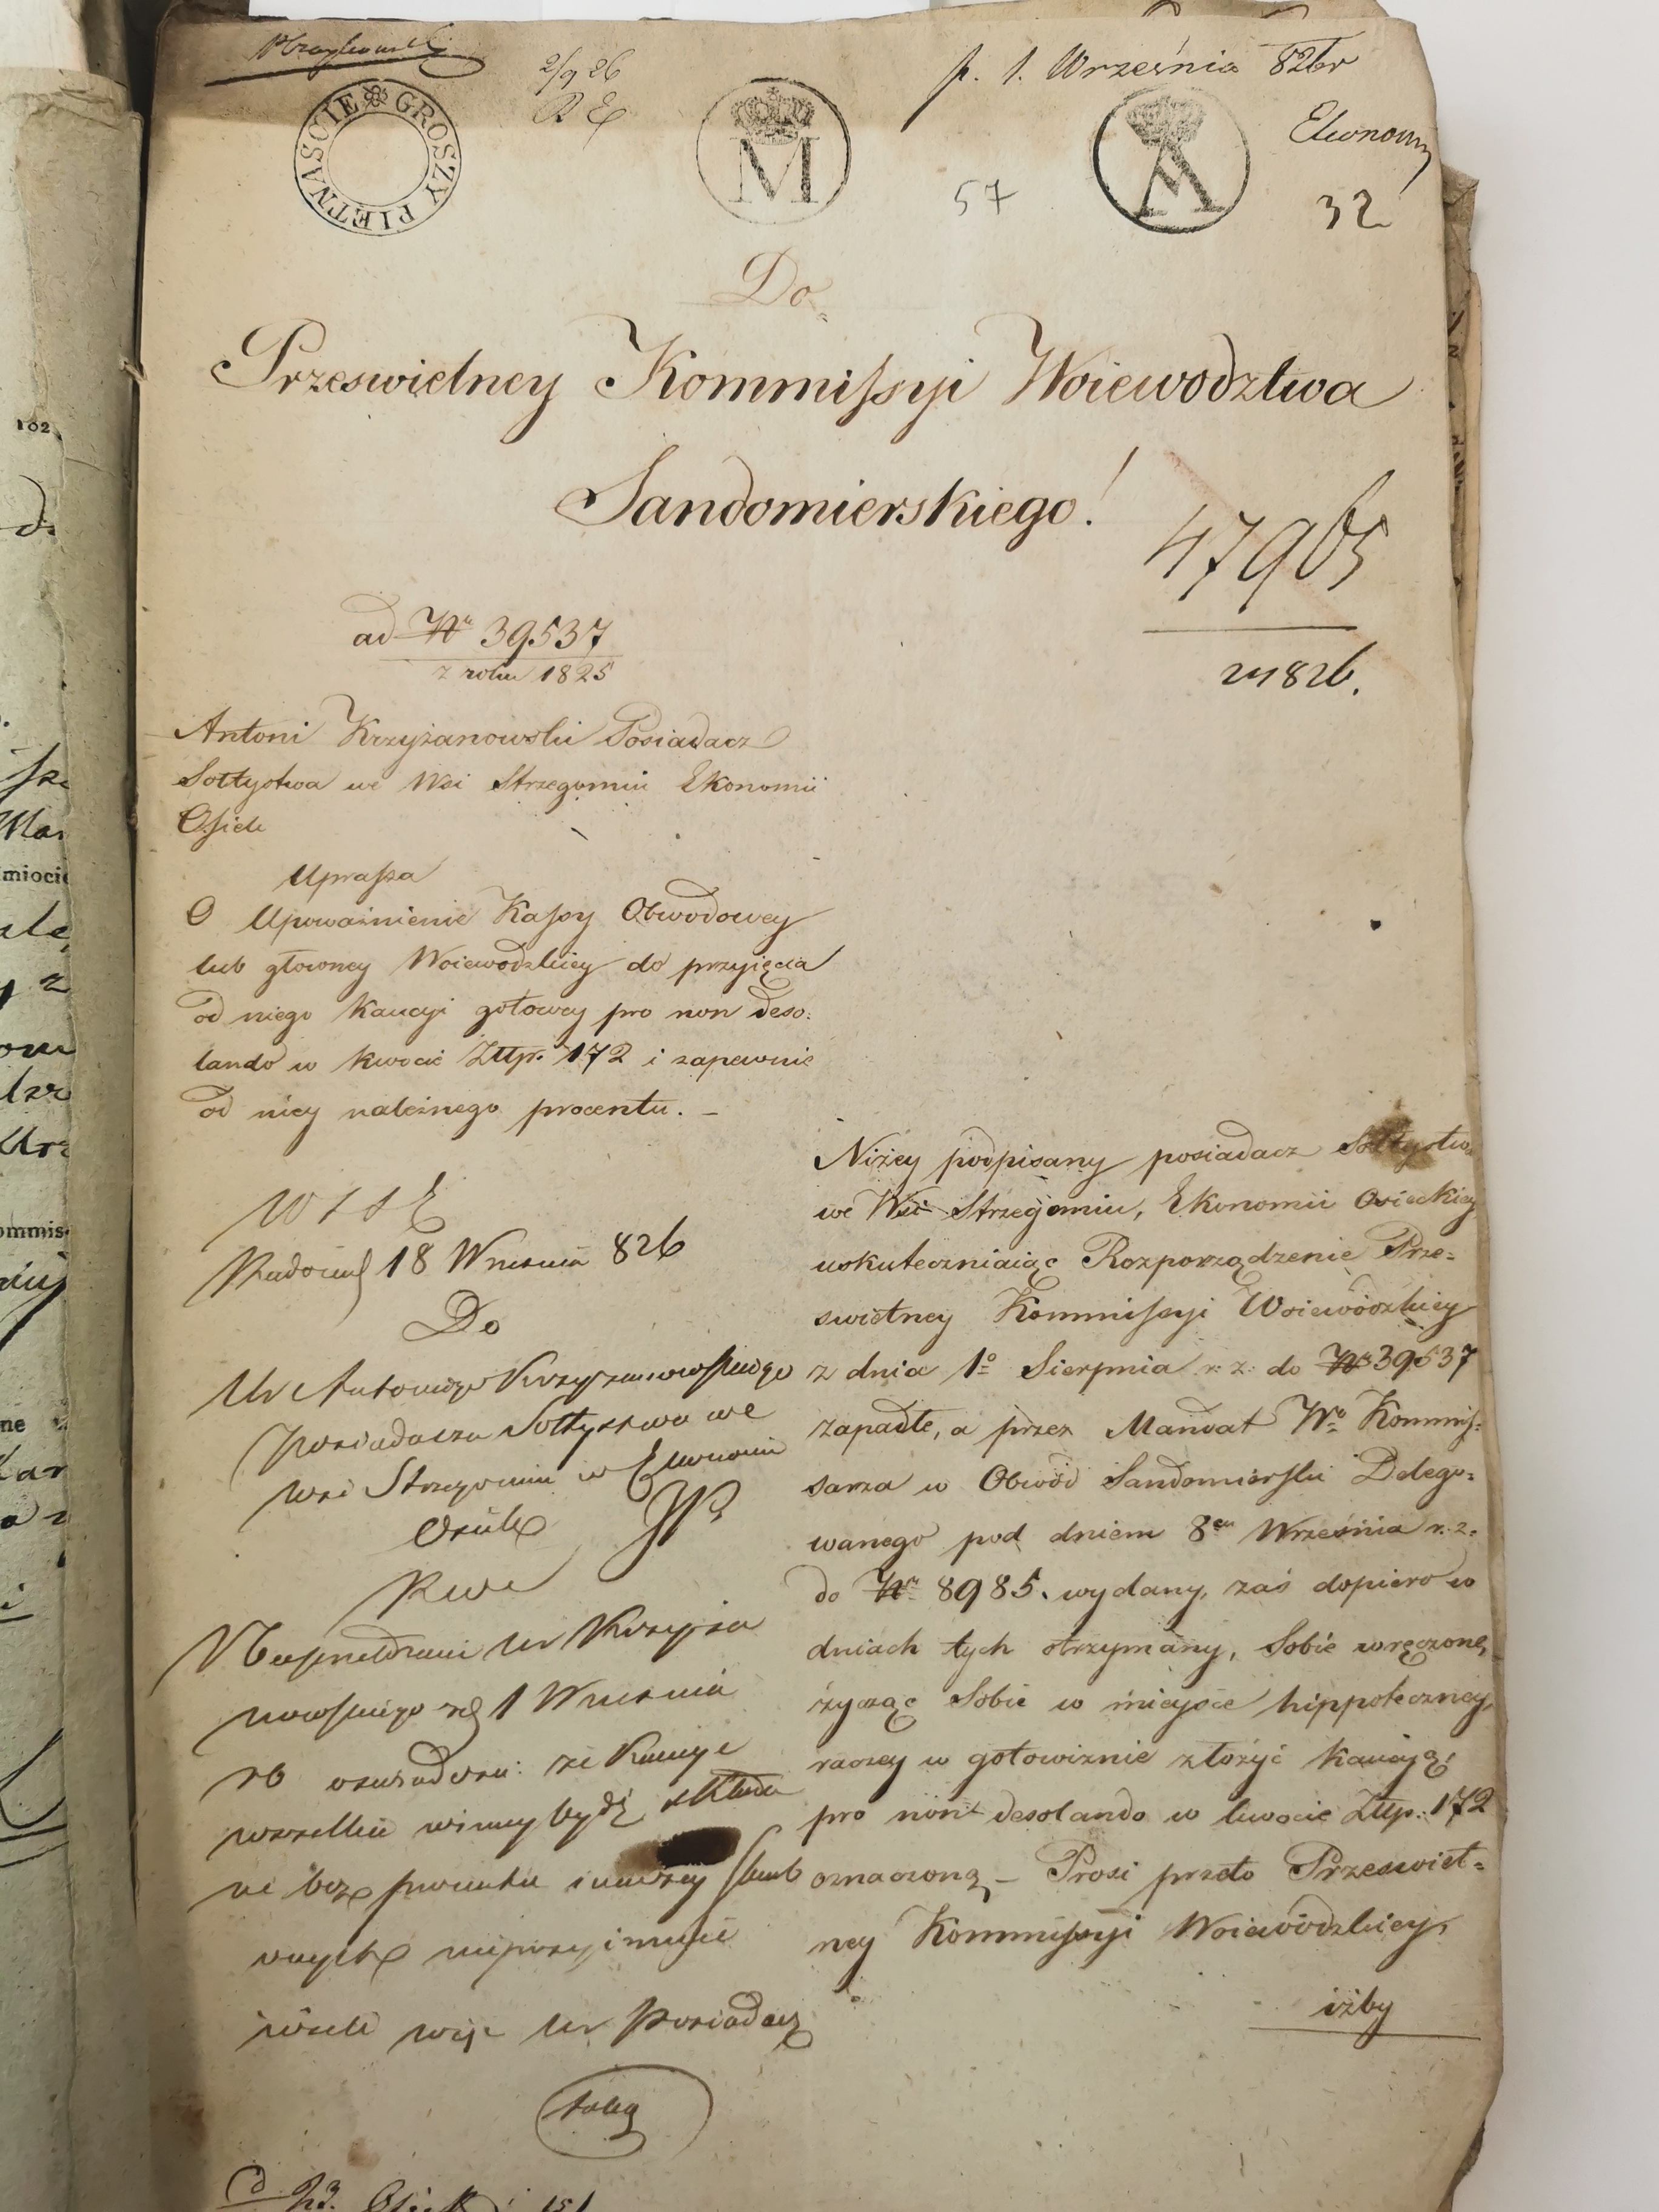 2/9 26
p. 1. Września 826 r
GROSZY PIETNASCIE
M
57
32
Do
Przeswietney Kommissyi Woiewodztwa
Sandomierskiego!
47965
826.
ad Nr 39537
z roku 1825
Antoni Krzyżanowski Posiadacz
Sołtystwa we Wsi Strzegomiu Ekonomii
Osiek
Uprasza
O Upoważnienie Kassy Obwodowey
lub główney Woiewodzkiey do przyięcia
od niego Kaucyi gotowey pro non deso:
lando w kwocie Złłp. 172 i zapewnie
od niey należnego procentu. –
Niżey podpisany posiadacz Sołtystwa
we Wsi Strzegomiu, Ekonomii Osieckiey
uskuteczniaiąc Rozporządzenie Prze=
swietney Kommissyi Woiewódzkiey
z dnia 1o Sierpnia r. z. do Nr 39537
zapadłe, a przez Mandat Wo Kommis=
sarza w Obwód Sandomierski Delego=
wanego pod dniem 8em Września r. z.
do Nr 8985. wydany, zaś dopiero w
dniach tych otrzymany, Sobie wręczone,
życząc Sobie w mieysce hippoteczney,
raczey w gotowiznie złożyć kaucyą,
pro non desolando w kwocie Złłp. 172
oznaczoną – Prosi przeto Przeswiet=
ney Kommissyi Woiewódzkiey,
iżby
W I S E
Radom d 18 Wrzesnia 826
Do
Ur Antoniego Krzyzanowskiego
Posiadacza Sołtystwa we
Wsi Strzegomiu w Ekonomii
Osiek
Na podanie Ur Krzyża
nowskiego z d 1 Wrzesnia
rb oswiadcza: ze Kaucye
wszelkie winny bydź składa
ne bez procentu i inaczey Skarb
onychże nieprzyimuie
ieżeli więc Ur Posiadacz